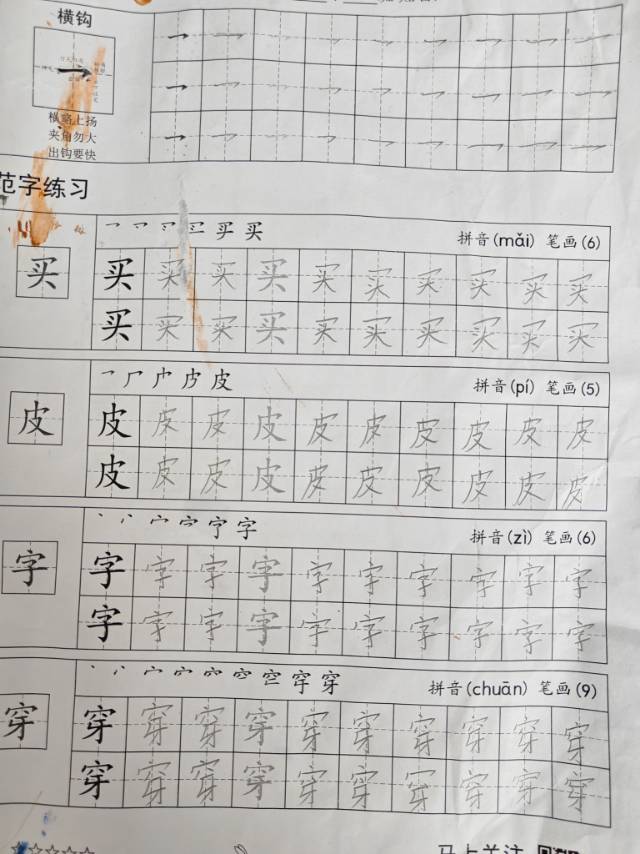 横钩
横略上扬
夹角勿大
出钩要快
范字练习
买 拼音(mǎi) 笔画(6)
买 买 买 买 买 买 买 买 买 买 买
买 买 买 买 买 买 买 买 买 买
皮 拼音(pí) 笔画(5)
皮 皮 皮 皮 皮 皮 皮 皮 皮 皮 皮
皮 皮 皮 皮 皮 皮 皮 皮 皮 皮
字 拼音(zì) 笔画(6)
字 字 字 字 字 字 字 字 字 字 字
字 字 字 字 字 字 字 字 字 字
穿 拼音(chuān) 笔画(9)
穿 穿 穿 穿 穿 穿 穿 穿 穿 穿 穿
穿 穿 穿 穿 穿 穿 穿 穿 穿 穿
马上关注